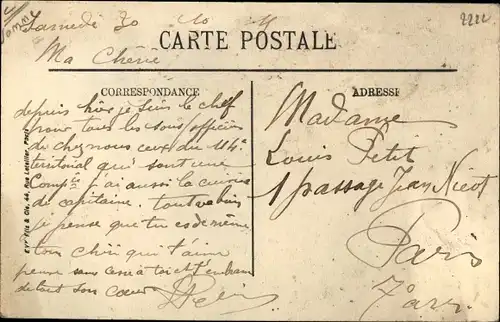 Somme
2222
Samedi 30
CARTE POSTALE
Ma Chérie
CORRESPONDANCE
ADRESSE
depuis hier je suis le chef
pour tous les sous/officiers
de chez nous ceux du 114e
territorial qui sont une
j'ai aussi la cuisine
de capitaine. tout va bien
je pense que tu es de même
ton chéri qui t'aime
pense sans cesse à toi et t'embrasse
de tout son cœur
Madame
Louis Petit
1 passage Jean Nicot
Paris
7e arr.